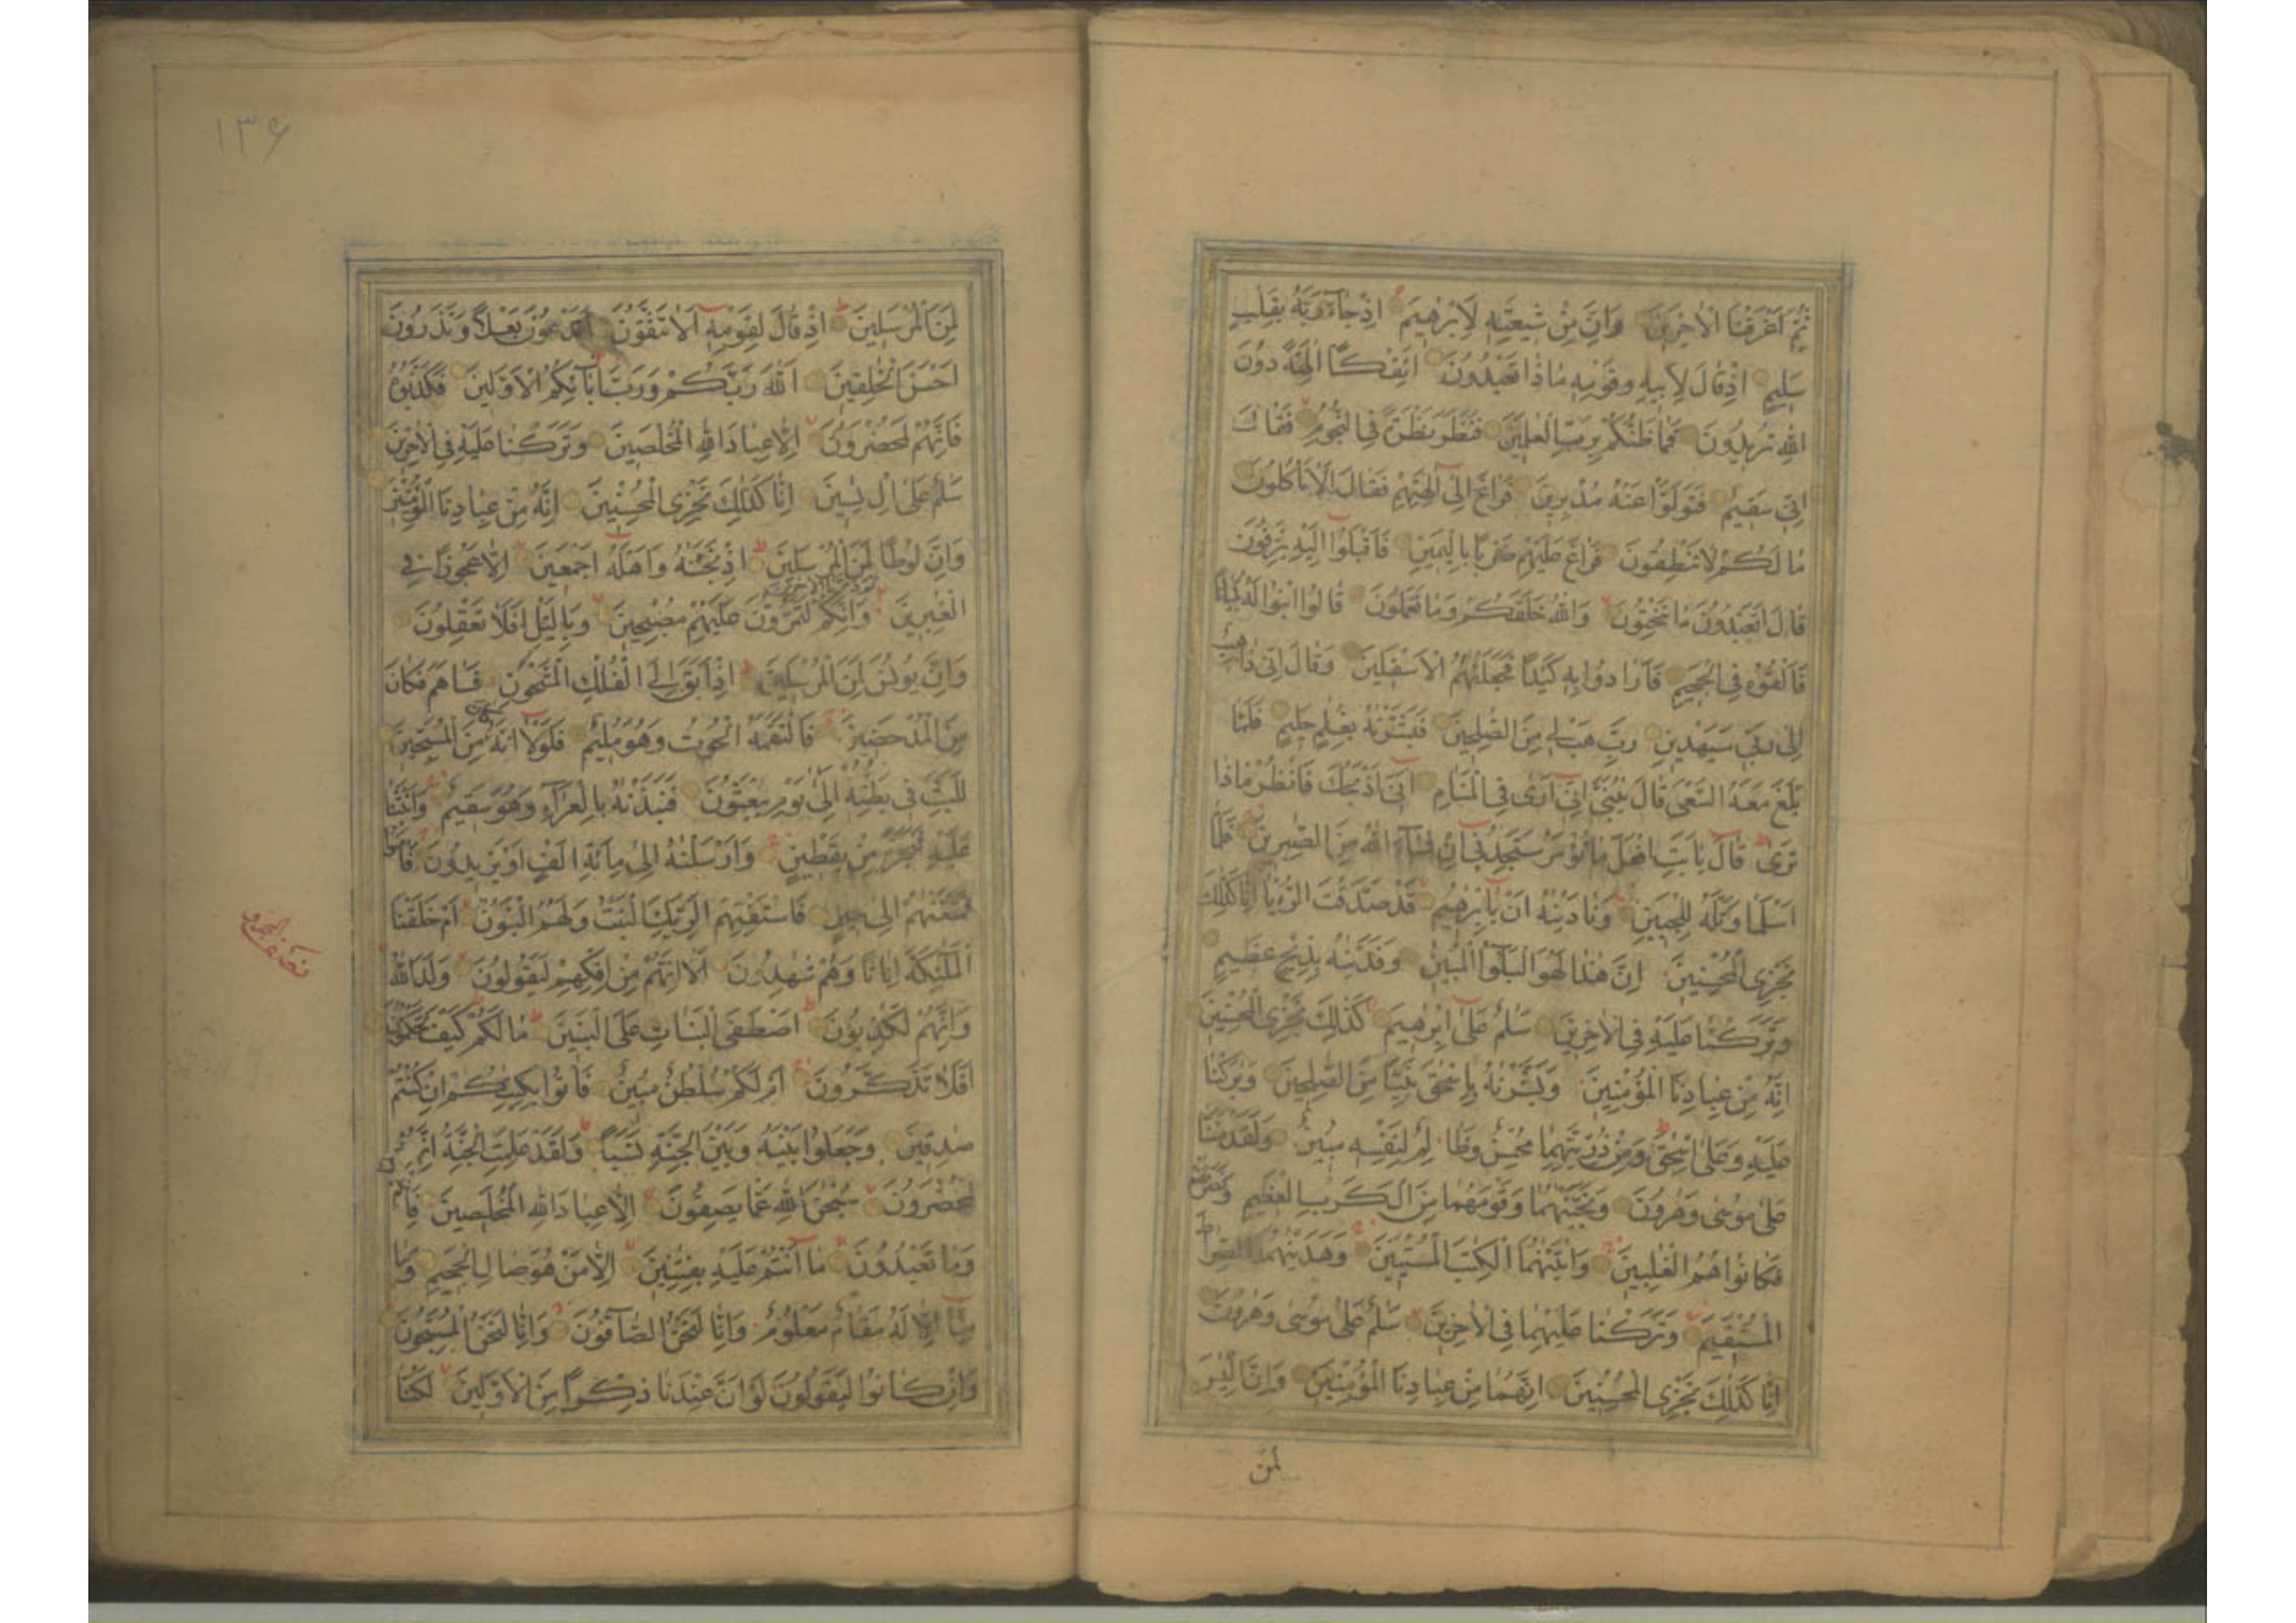 ثُمَّ اَغْرَقْنَا الْاٰخَرِينَ وَاِنَّ مِنْ شِيعَتِهٖ لَاِبْرٰهِيمَ اِذْ جَآءَ رَبَّهُ بِقَلْبٍ
سَلِيمٍ اِذْ قَالَ لِاَبِيهِ وَقَوْمِهٖ مَاذَا تَعْبُدُونَ اَئِفْكًا اٰلِهَةً دُونَ
اللّٰهِ تُرِيدُونَ فَمَا ظَنُّكُمْ بِرَبِّ الْعٰلَمِينَ فَنَظَرَ نَظْرَةً فِى النُّجُومِ فَقَالَ
اِنِّى سَقِيمٌ فَتَوَلَّوْا عَنْهُ مُدْبِرِينَ فَرَاغَ اِلٰٓى اٰلِهَتِهِمْ فَقَالَ اَلَا تَاْكُلُونَ
مَا لَكُمْ لَا تَنْطِقُونَ فَرَاغَ عَلَيْهِمْ ضَرْبًا بِالْيَمِينِ فَاَقْبَلُوٓا اِلَيْهِ يَزِفُّونَ
قَالَ اَتَعْبُدُونَ مَا تَنْحِتُونَ وَاللّٰهُ خَلَقَكُمْ وَمَا تَعْمَلُونَ قَالُوا ابْنُوا لَهُ بُنْيَانًا
فَاَلْقُوهُ فِى الْجَحِيمِ فَاَرَادُوا بِهٖ كَيْدًا فَجَعَلْنٰهُمُ الْاَسْفَلِينَ وَقَالَ اِنِّى ذَاهِبٌ
اِلٰى رَبِّى سَيَهْدِينِ رَبِّ هَبْ لِى مِنَ الصّٰلِحِينَ فَبَشَّرْنٰهُ بِغُلٰمٍ حَلِيمٍ فَلَمَّا
بَلَغَ مَعَهُ السَّعْىَ قَالَ يٰبُنَىَّ اِنِّىٓ اَرٰى فِى الْمَنَامِ اَنِّىٓ اَذْبَحُكَ فَانْظُرْ مَاذَا
تَرٰى قَالَ يٰٓاَبَتِ افْعَلْ مَا تُؤْمَرُ سَتَجِدُنِىٓ اِنْ شَآءَ اللّٰهُ مِنَ الصّٰبِرِينَ فَلَمَّآ
اَسْلَمَا وَتَلَّهُ لِلْجَبِينِ وَنَادَيْنٰهُ اَنْ يٰٓاِبْرٰهِيمُ قَدْ صَدَّقْتَ الرُّءْيَا اِنَّا كَذٰلِكَ
نَجْزِى الْمُحْسِنِينَ اِنَّ هٰذَا لَهُوَ الْبَلٰٓؤُا الْمُبِينُ وَفَدَيْنٰهُ بِذِبْحٍ عَظِيمٍ
وَتَرَكْنَا عَلَيْهِ فِى الْاٰخِرِينَ سَلٰمٌ عَلٰٓى اِبْرٰهِيمَ كَذٰلِكَ نَجْزِى الْمُحْسِنِينَ
اِنَّهُ مِنْ عِبَادِنَا الْمُؤْمِنِينَ وَبَشَّرْنٰهُ بِاِسْحٰقَ نَبِيًّا مِنَ الصّٰلِحِينَ وَبٰرَكْنَا
عَلَيْهِ وَعَلٰٓى اِسْحٰقَ وَمِنْ ذُرِّيَّتِهِمَا مُحْسِنٌ وَظَالِمٌ لِنَفْسِهٖ مُبِينٌ وَلَقَدْ مَنَنَّا
عَلٰى مُوسٰى وَهٰرُونَ وَنَجَّيْنٰهُمَا وَقَوْمَهُمَا مِنَ الْكَرْبِ الْعَظِيمِ وَنَصَرْنٰهُمْ
فَكَانُوا هُمُ الْغٰلِبِينَ وَاٰتَيْنٰهُمَا الْكِتٰبَ الْمُسْتَبِينَ وَهَدَيْنٰهُمَا الصِّرَاطَ
الْمُسْتَقِيمَ وَتَرَكْنَا عَلَيْهِمَا فِى الْاٰخِرِينَ سَلٰمٌ عَلٰى مُوسٰى وَهٰرُونَ
اِنَّا كَذٰلِكَ نَجْزِى الْمُحْسِنِينَ اِنَّهُمَا مِنْ عِبَادِنَا الْمُؤْمِنِينَ وَاِنَّ اِلْيَاسَ
لَمِنَ
١٣۶
لَمِنَ الْمُرْسَلِينَ اِذْ قَالَ لِقَوْمِهٖٓ اَلَا تَتَّقُونَ اَتَدْعُونَ بَعْلًا وَتَذَرُونَ
اَحْسَنَ الْخٰلِقِينَ اَللّٰهَ رَبَّكُمْ وَرَبَّ اٰبَآئِكُمُ الْاَوَّلِينَ فَكَذَّبُوهُ
فَاِنَّهُمْ لَمُحْضَرُونَ اِلَّا عِبَادَ اللّٰهِ الْمُخْلَصِينَ وَتَرَكْنَا عَلَيْهِ فِى الْاٰخِرِينَ
سَلٰمٌ عَلٰٓى اِلْ يَاسِينَ اِنَّا كَذٰلِكَ نَجْزِى الْمُحْسِنِينَ اِنَّهُ مِنْ عِبَادِنَا الْمُؤْمِنِينَ
وَاِنَّ لُوطًا لَمِنَ الْمُرْسَلِينَ اِذْ نَجَّيْنٰهُ وَاَهْلَهُٓ اَجْمَعِينَ اِلَّا عَجُوزًا فِى
ثُمَّ دَمَّرْنَا الْاٰخَرِينَ
الْغٰبِرِينَ وَاِنَّكُمْ لَتَمُرُّونَ عَلَيْهِمْ مُصْبِحِينَ وَبِالَّيْلِ اَفَلَا تَعْقِلُونَ
وَاِنَّ يُونُسَ لَمِنَ الْمُرْسَلِينَ اِذْ اَبَقَ اِلَى الْفُلْكِ الْمَشْحُونِ فَسَاهَمَ فَكَانَ
مِنَ الْمُدْحَضِينَ فَالْتَقَمَهُ الْحُوتُ وَهُوَ مُلِيمٌ فَلَوْلَآ اَنَّهُ كَانَ مِنَ الْمُسَبِّحِينَ
لَلَبِثَ فِى بَطْنِهٖٓ اِلٰى يَوْمِ يُبْعَثُونَ فَنَبَذْنٰهُ بِالْعَرَآءِ وَهُوَ سَقِيمٌ وَاَنْبَتْنَا
عَلَيْهِ شَجَرَةً مِنْ يَقْطِينٍ وَاَرْسَلْنٰهُ اِلٰى مِائَةِ اَلْفٍ اَوْ يَزِيدُونَ فَاٰمَنُوا
فَمَتَّعْنٰهُمْ اِلٰى حِينٍ فَاسْتَفْتِهِمْ اَلِرَبِّكَ الْبَنَاتُ وَلَهُمُ الْبَنُونَ اَمْ خَلَقْنَا
الْمَلٰٓئِكَةَ اِنَاثًا وَهُمْ شٰهِدُونَ اَلَآ اِنَّهُمْ مِنْ اِفْكِهِمْ لَيَقُولُونَ وَلَدَ اللّٰهُ
وَاِنَّهُمْ لَكٰذِبُونَ اَصْطَفَى الْبَنَاتِ عَلَى الْبَنِينَ مَا لَكُمْ كَيْفَ تَحْكُمُونَ
اَفَلَا تَذَكَّرُونَ اَمْ لَكُمْ سُلْطٰنٌ مُبِينٌ فَاْتُوا بِكِتٰبِكُمْ اِنْ كُنْتُمْ
صٰدِقِينَ وَجَعَلُوا بَيْنَهُ وَبَيْنَ الْجِنَّةِ نَسَبًا وَلَقَدْ عَلِمَتِ الْجِنَّةُ اِنَّهُمْ
لَمُحْضَرُونَ سُبْحٰنَ اللّٰهِ عَمَّا يَصِفُونَ اِلَّا عِبَادَ اللّٰهِ الْمُخْلَصِينَ فَاِنَّكُمْ
وَمَا تَعْبُدُونَ مَآ اَنْتُمْ عَلَيْهِ بِفٰتِنِينَ اِلَّا مَنْ هُوَ صَالِ الْجَحِيمِ وَمَا
مِنَّآ اِلَّا لَهُ مَقَامٌ مَعْلُومٌ وَاِنَّا لَنَحْنُ الصَّآفُّونَ وَاِنَّا لَنَحْنُ الْمُسَبِّحُونَ
وَاِنْ كَانُوا لَيَقُولُونَ لَوْ اَنَّ عِنْدَنَا ذِكْرًا مِنَ الْاَوَّلِينَ لَكُنَّا